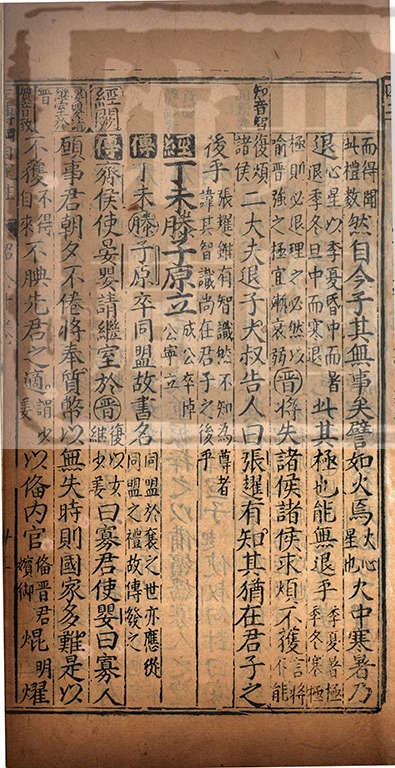 而得聞此禮數然自今子其無事矣譬如火焉火心星也火中寒暑乃
退心星以季夏昏中而暑退季冬旦中而寒退此其極也能無退乎季夏暑極季冬寒極
極則必退理之必然以喻晉強之極宜漸衰弱晉將失諸侯諸侯求煩不獲言將不能
知音智
復煩諸侯二大夫退子大叔告人曰張趯有知其猶在君子之
後乎張趯雖有智識然不知為尊者諱其智識尚在君子之後乎
經丁未滕子原立成公卒悼公寧立
傳丁未滕子原卒同盟故書名同盟於襄之世亦應從同盟之禮故傳發之
經闕
傳齊侯使晏嬰請繼室於晉復以女繼少姜曰寡君使嬰曰寡人
願事君朝夕不倦將奉質幣以無失時則國家多難是以
不獲不得自來不腆先君之適謂少姜以備內官備晉君嬪御焜明燿